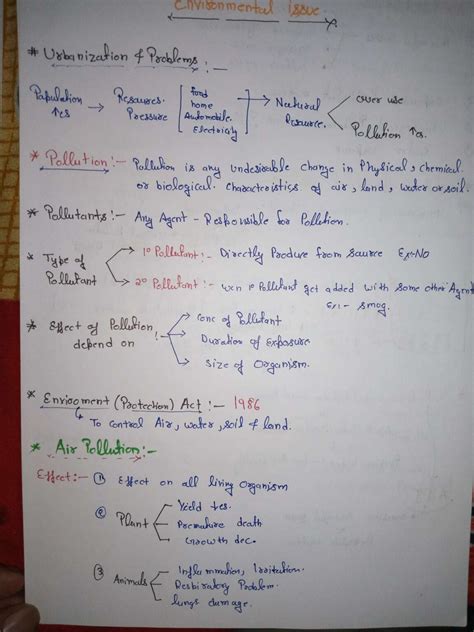 Environmental issue
# Urbanization & Problems :-
Population ↑es → Resources. Pressure [ food home Automobile. Electricity ] → Natural Resource. < over use
Pollution ↑es.
* Pollution :- Pollution is any undesirable change in Physical, chemical
or biological. characteristics of air, land, water or soil.
* Pollutants :- Any Agent - Responsible for Pollution.
* Type of Pollutant
1° Pollutant :- Directly Produce from source Ex-NO
2° Pollutant :- wxn 1° Pollutant get added with some other Agent
Ex:- smog.
* Effect of Pollution depend on :-
Conc of Pollutant
Duration of Exposure
Size of Organism.
* Enviroment (Protection) Act :- 1986
To control Air, water, soil & land.
* Air Pollution :-
Effect :- ① Effect on all living Organism
② Plant
Yield
Premature death
Growth dec.
③ Animals
Inflammation, Irritation.
Respiratory Problem.
lungs damage.